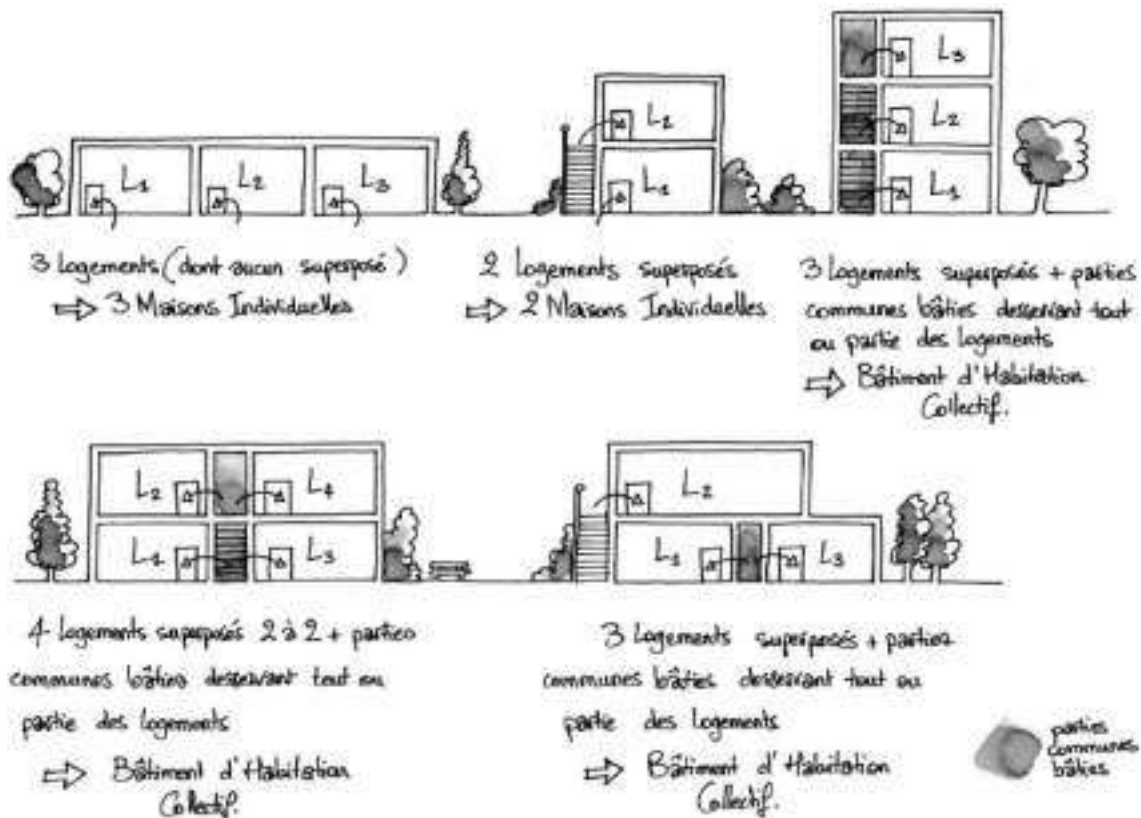 L1
L2
L3
L2
L1
L3
L2
L1
3 Logements (dont aucun superposé)
⇨ 3 Maisons Individuelles
2 Logements superposés
⇨ 2 Maisons Individuelles
3 Logements superposés + parties
communes bâties desservant tout
ou partie des logements
⇨ Bâtiment d'Habitation
Collectif.
L2
L4
L1
L3
L2
L1
L3
4 Logements superposés 2 à 2 + parties
communes bâties desservant tout ou
partie des logements
⇨ Bâtiment d'Habitation
Collectif.
3 Logements superposés + parties
communes bâties desservant tout ou
partie des logements
⇨ Bâtiment d'Habitation
Collectif.
parties
communes
bâties